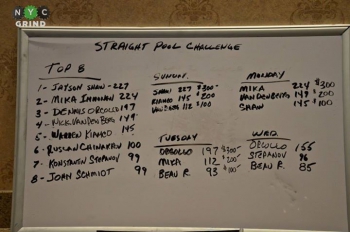 NYC
GRIND
STRAIGHT POOL CHALLENGE
TOP 8
1- JAYSON SHAW - 227
2- MIKA IMMONEN 224
3- DENNIS ORCOLLO 197
4- NICK VAN DEN BERG 149
5- WARREN KIAMCO 145
6- RUSLAN CHINAKHOV 100
7- KONSTANTIN STEPANOV 99
8- JOHN SCHMIDT 99
SUNDAY
SHAW 227 $300
KIAMCO 145 $200
112 $100
MONDAY
MIKA 224 $300
VANDENBERG 149 $200
SHAW 145 $100
TUESDAY
ORCOLLO 197 $300
MIKA 112 $200
BEAN R. 93 $100
WED.
ORCOLLO 155
STEPANOV 96
BEAU R. 85